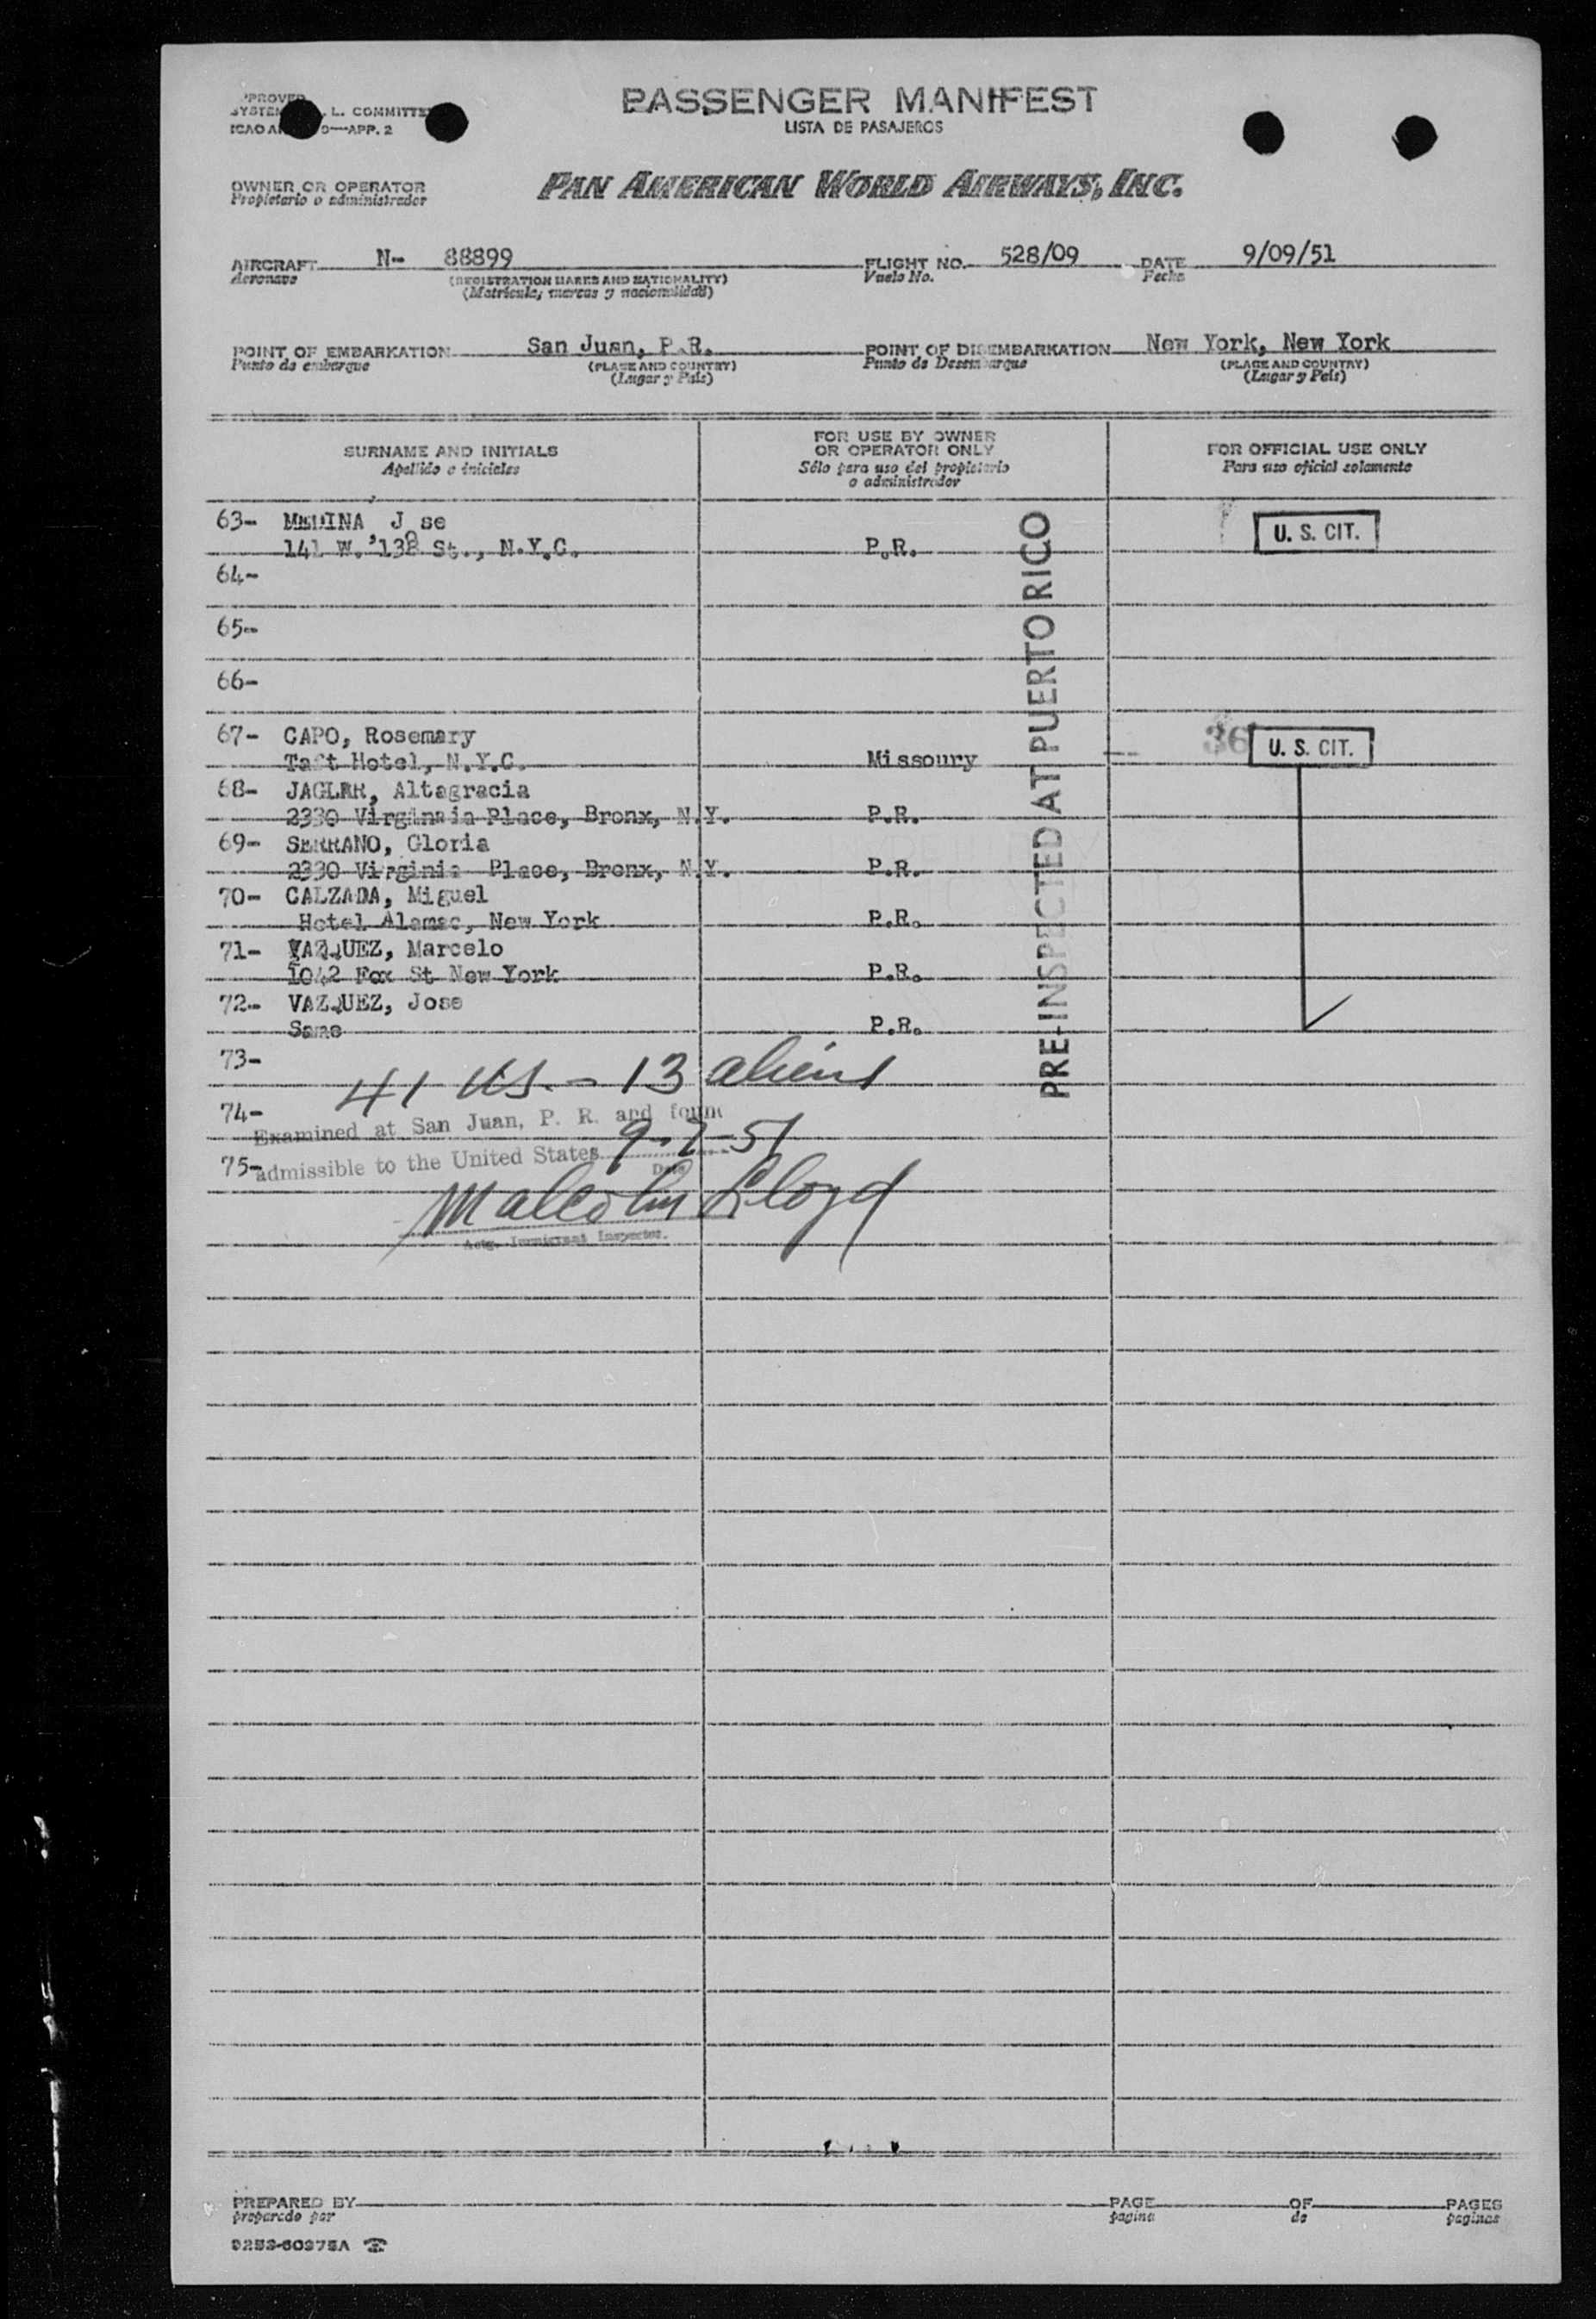 PASSENGER MANIFEST
LISTA DE PASAJEROS
L. COMMITTE
APP. 2
OWNER OR OPERATOR
Propietario o administrador
PAN AMERICAN WORLD AIRWAYS, INC.
AIRCRAFT N- 88899 FLIGHT NO. 528/09 DATE 9/09/51
Aeronave (REGISTRATION MARKS AND NATIONALITY) Vuelo No. Fecha
(Matrícula, marcas y nacionalidad)
POINT OF EMBARKATION San Juan, P.R. POINT OF DISEMBARKATION New York, New York
Punto de embarque (PLACE AND COUNTRY) Punto de Desembarque (PLACE AND COUNTRY)
(Lugar y País) (Lugar y País)
SURNAME AND INITIALS
Apellido e iniciales
FOR USE BY OWNER
OR OPERATOR ONLY
Sólo para uso del propietario
o administrador
FOR OFFICIAL USE ONLY
Para uso oficial solamente
63- MEDINA Jose U. S. CIT.
141 W. 138 St., N.Y.C. P.R.
64-
65-
66-
67- CAPO, Rosemary 36 U. S. CIT.
Taft Hotel, N.Y.C. Missoury
68- JAGLER, Altagracia
2330 Virginnia Place, Bronx, N.Y. P.R.
69- SERRANO, Gloria
2330 Virginia Place, Bronx, N.Y. P.R.
70- CALZADA, Miguel
Hotel Alamac, New York P.R.
71- VAZQUEZ, Marcelo
1042 Fox St New York P.R.
72- VAZQUEZ, Jose
Same P.R.
PRE-INSPECTED AT PUERTO RICO
73-
41 US. - 13 aliens
74-
Examined at San Juan, P. R. and found
75-
admissible to the United States 9-7-51
Date
Malcolm Lloyd
Actg. Immigrant Inspector.
PREPARED BY PAGE OF PAGES
preparado por pagina de paginas